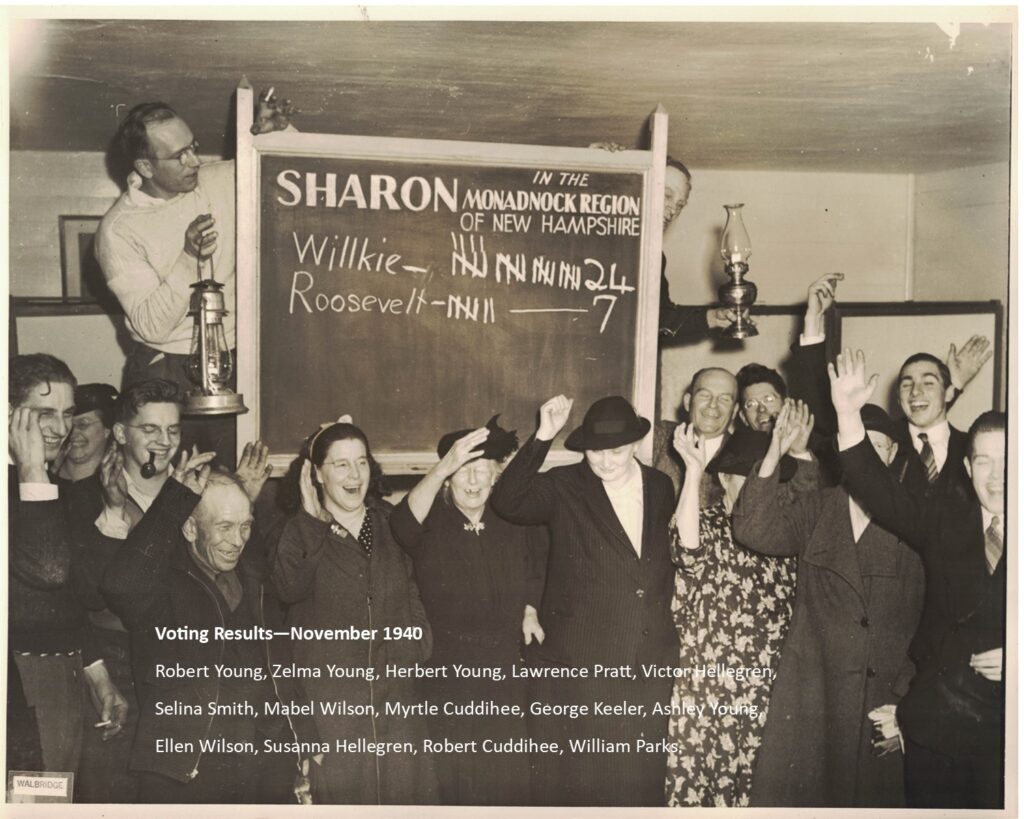 SHARON IN THE
MONADNOCK REGION
OF NEW HAMPSHIRE
Willkie — 24
Roosevelt — 7
Voting Results—November 1940
Robert Young, Zelma Young, Herbert Young, Lawrence Pratt, Victor Hellegren,
Selina Smith, Mabel Wilson, Myrtle Cuddihee, George Keeler, Ashley Young,
Ellen Wilson, Susanna Hellegren, Robert Cuddihee, William Parks.
WALBRIDGE